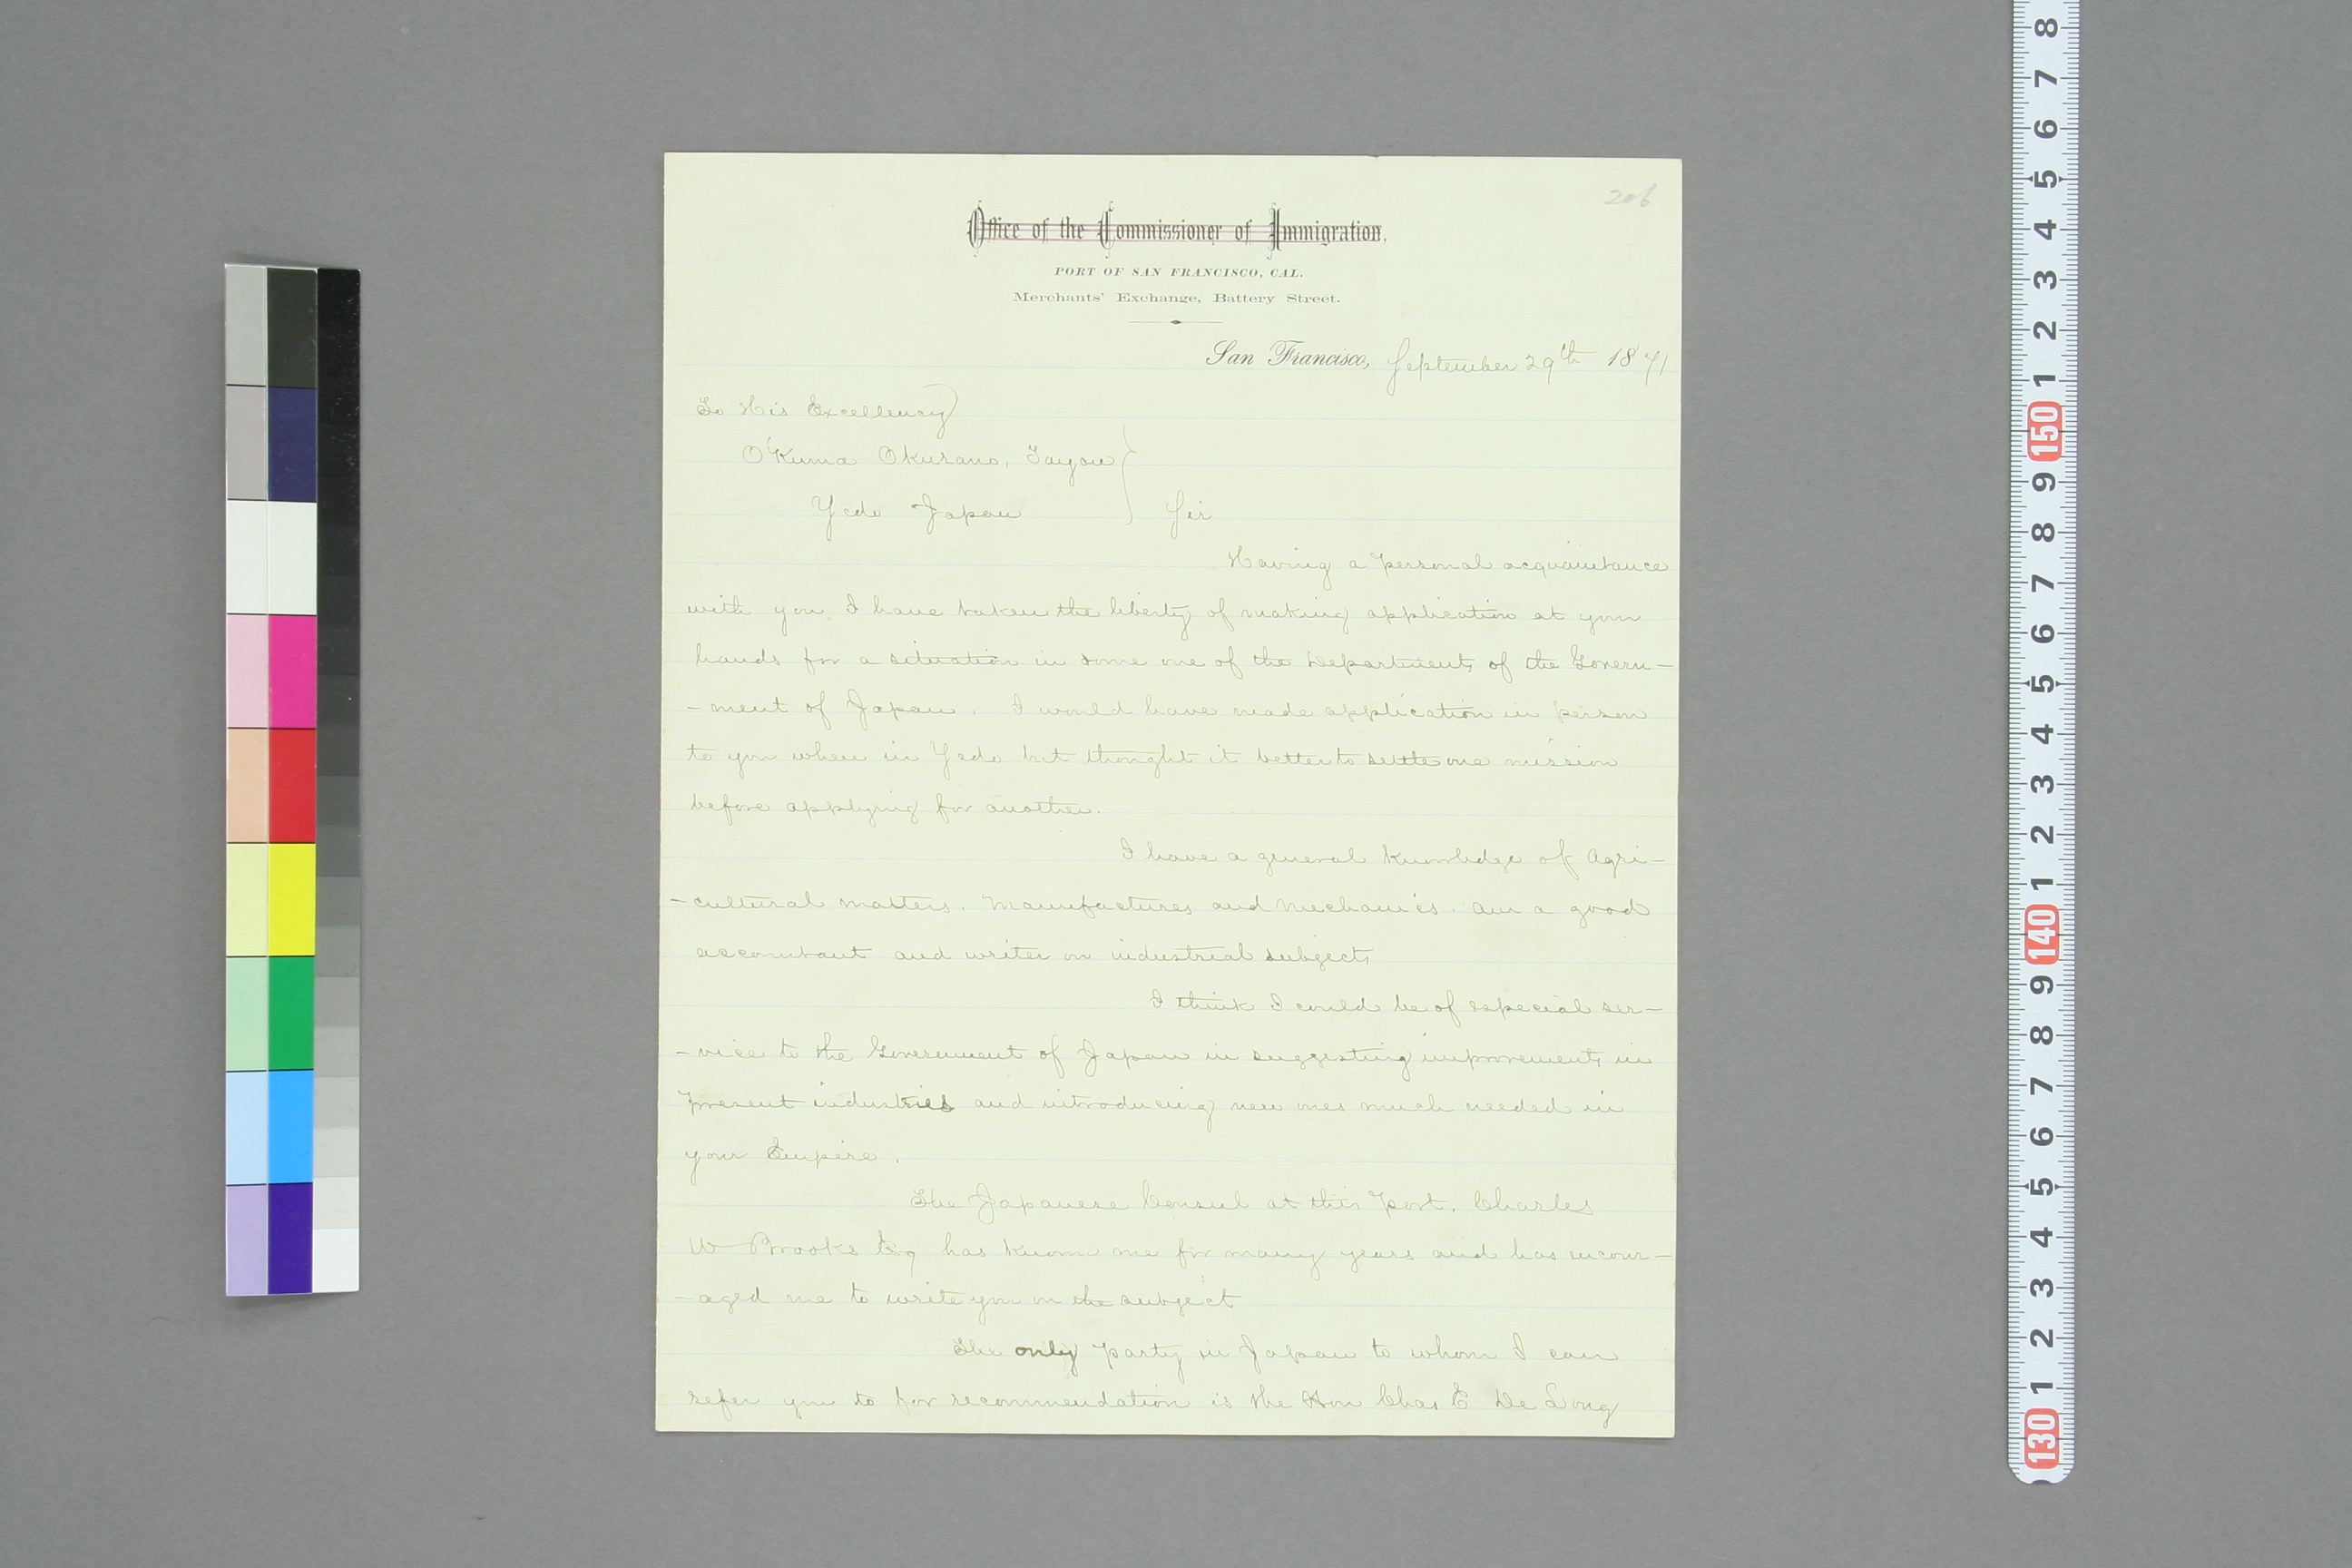 206
Office of the Commissioner of Immigration.
PORT OF SAN FRANCISCO, CAL.
Merchants' Exchange, Battery Street.
San Francisco, September 29th 1871
To His Excellency
O'Kuma Okurano, Tayou
Yedo Japan Sir
Having a personal acquaintance
with you, I have taken the liberty of making application at your
hands for a situation in some one of the Departments of the Govern-
-ment of Japan. I would have made application in person
to you when in Yedo but thought it better to settle one mission
before applying for another.
I have a general knowledge of Agri-
-cultural matters, Manufactures and Mechanics. Am a good
accountant and writer on industrial subjects
I think I could be of especial ser-
-vice to the Government of Japan in suggesting improvements in
present industries and introducing new ones much needed in
your Empire.
The Japanese Consul at this Port, Charles
W Brooks Esq has known me for many years and has encour-
-aged me to write you on the subject
The only party in Japan to whom I can
refer you to for recommendation is the Hon Chas E De Long
8
7
6
5
4
3
2
1
150
9
8
7
6
5
4
3
2
1
140
9
8
7
6
5
4
3
2
1
130